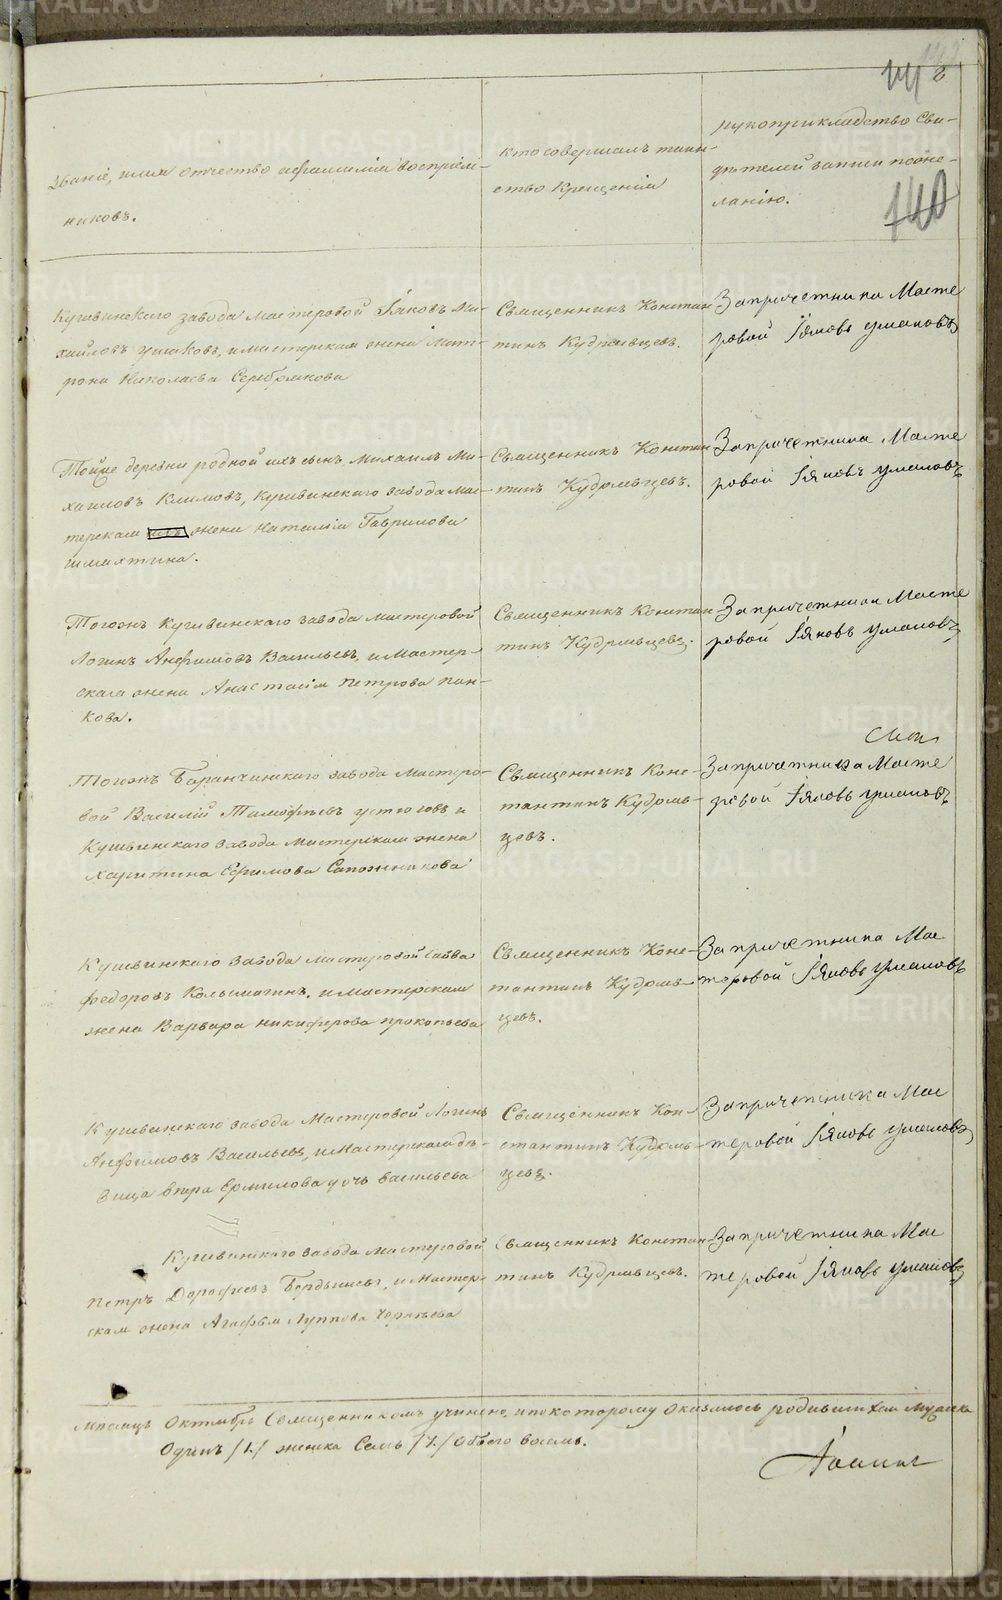 званіе, имя отчество ифамилія воспріем-
никовъ.
кто совершалъ таин-
ство Крещенія
рукоприкладство сви-
дѣтелей записи пожe-
ланію.
140
Кушвинскаго завода мастеровой Іяковъ Ми-
хайловъ ушаковъ, имастерская жена Мат-
рона Николаева Серебрякова
Священникъ Констан
тинъ Кудрявцевъ.
Запричетника Масте
ровой Іяковъ ушаковъ
Тойже деревни родной ихъ сынъ Михаилъ Ми-
хаиловъ Климовъ, Кушвинскаго завода мас-
терская жена Наталія Гаврилова
Священникъ Констан
тинъ Кудрявцевъ.
Запричетника Масте
ровой Іяковъ ушаковъ
Тогожъ Кушвинскаго завода мастеровой
Логинъ Анфимовъ Васильевъ, и Мастер-
ская жена Анастасія Петрова пан-
кова.
Священникъ Констан
тинъ Кудрявцевъ.
Запричетника Масте
ровой Іяковъ ушаковъ
Тогожъ Баранчинскаго завода мастеро-
вой Василій Тимофѣевъ устюговъ и
Кушвинскаго завода Мастерская жена
Харитина Ефимова Сапожникова
Священникъ Конс-
тантинъ Кудряв-
цевъ.
Запричетника Масте
ровой Іяковъ ушаковъ
Кушвинскаго завода мастеровой Савва
федоровъ Колымагинъ, имастерская
жена Варвара никифорова прокопьева
Священникъ Конс-
тантинъ Кудряв-
цевъ.
Запричетника Мас
теровой Іяковъ ушаковъ
Кушвинскаго завода Мастеровой Логинъ
Анфимовъ Васильевъ, иМастерская дѣ-
вица вѣра Ермилова дочь васильева
Священникъ Кон-
стантинъ Кудряв-
цевъ.
Запричетника Мас
теровой Іяковъ ушаковъ
Кушвинскаго завода мастеровой
петръ Дорофеевъ Бердышевъ, и Мастер-
ская жена Агафья Луппова
Священникъ Констан-
тинъ Кудрявцевъ.
Запричетника Мас
теровой Іяковъ ушаковъ
Мѣсяцъ Октябрь Священникомъ учинено, ипокоторому оказалось родившихся Мужска
Одинъ /1/ женска Семь /7/ Обоего восемь.
METRIKI.GASO-URAL.RU